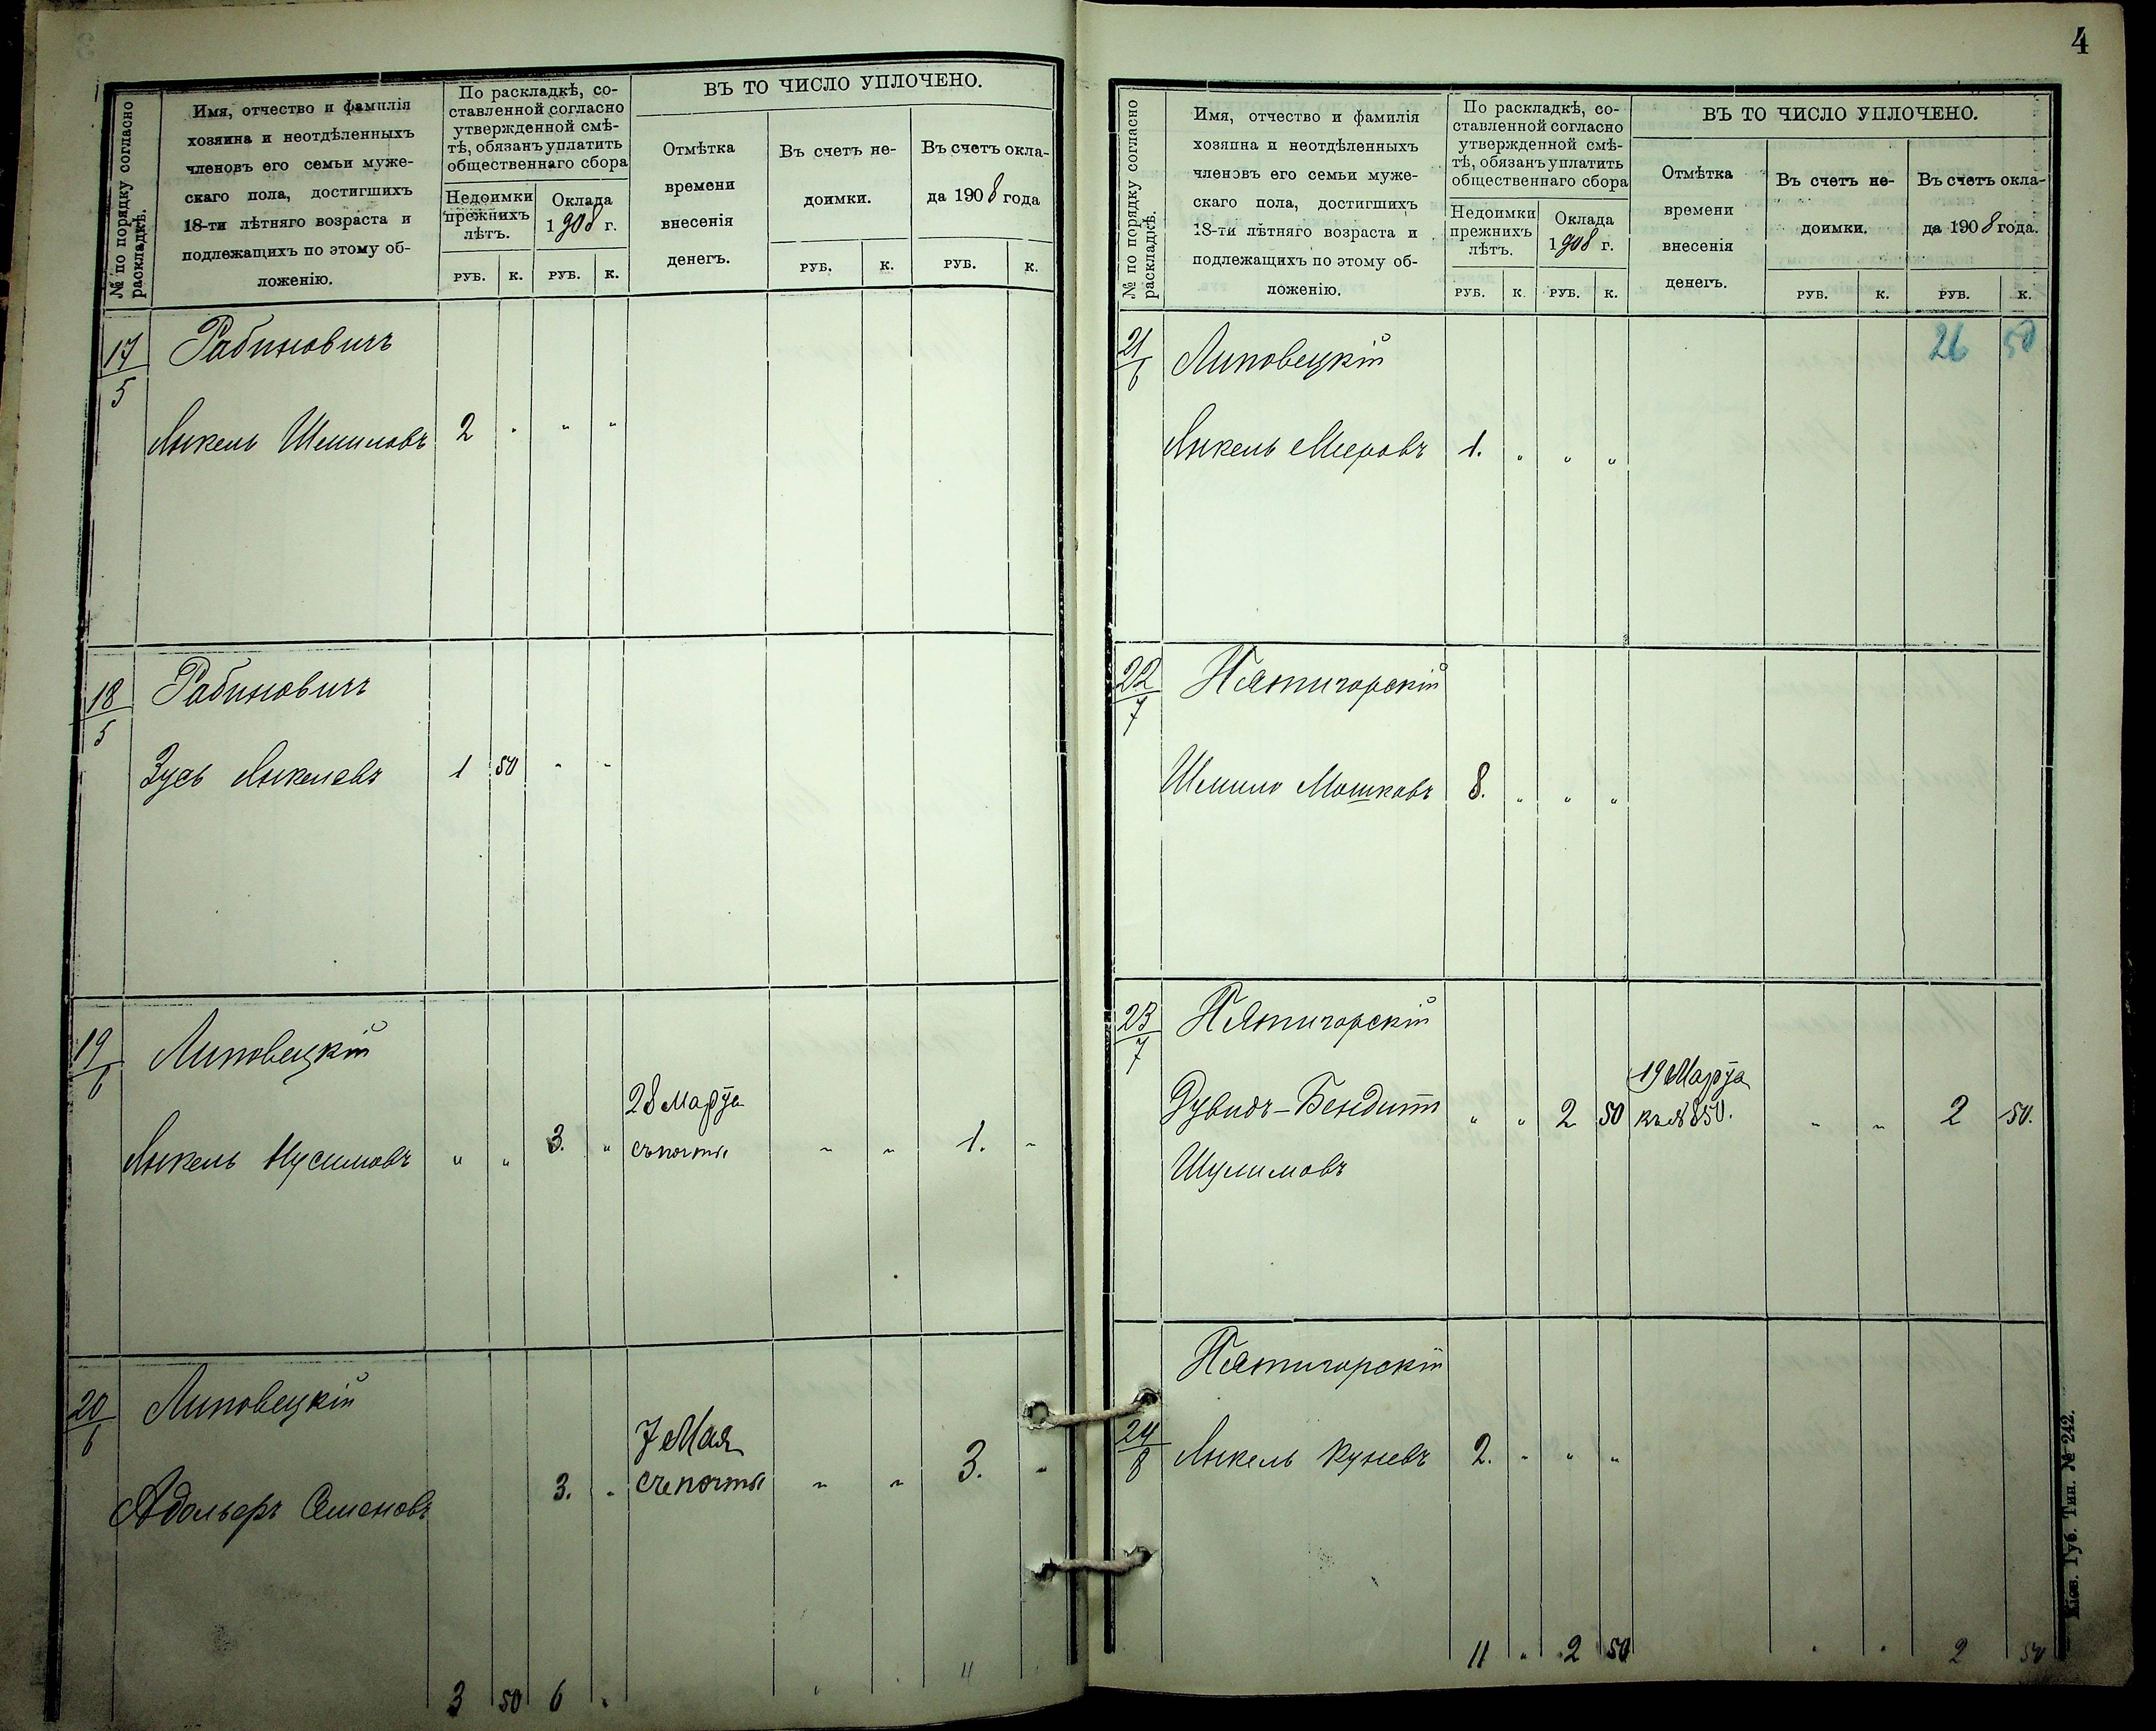 № по порядку согласно раскладкѣ.
Имя, отчество и фамилія
хозяина и неотдѣленныхъ
членовъ его семьи муже-
скаго пола, достигшихъ
18-ти лѣтняго возраста и
подлежащихъ по этому об-
ложенію.
По раскладкѣ, со-
ставленной согласно
утвержденной смѣ-
тѣ, обязанъ уплатить
общественнаго сбора
Недоимки
прежнихъ
лѣтъ.
Оклада
1908 г.
РУБ. К. РУБ. К.
ВЪ ТО ЧИСЛО УПЛОЧЕНО.
Отмѣтка
времени
внесенія
денегъ.
Въ счетъ не-
доимки.
Въ счетъ окла-
да 1908 года
РУБ. К. РУБ. К.
17/5 Рабиновичъ
Янкель Шмилевъ 2 " " "
18/5 Рабиновичъ
Зусь Янкелевъ 1 50 " "
19/6 Липовецкій
28 Марта
Янкель Нусимовъ " " 3. " съ почты " " 1. "
20/6 Липовецкій
7 Мая
Адольфъ Семеновъ 3. " съ почты " " 3. "
3 50 6 " " " 4 "
4
№ по порядку согласно раскладкѣ.
Имя, отчество и фамилія
хозяина и неотдѣленныхъ
членовъ его семьи муже-
скаго пола, достигшихъ
18-ти лѣтняго возраста и
подлежащихъ по этому об-
ложенію.
По раскладкѣ, со-
ставленной согласно
утвержденной смѣ-
тѣ, обязанъ уплатить
общественнаго сбора
Недоимки
прежнихъ
лѣтъ.
Оклада
1908 г.
РУБ. К. РУБ. К.
ВЪ ТО ЧИСЛО УПЛОЧЕНО.
Отмѣтка
времени
внесенія
денегъ.
Въ счетъ не-
доимки.
Въ счетъ окла-
да 1908 года.
РУБ. К. РУБ. К.
26 50
21/6 Липовецкій
Янкель Мееровъ 1. " " "
22/7 Пятигорскій
Шмило Мошковъ 8. " " "
23/7 Пятигорскій
19 Марта
Дувидъ-Бендитъ " " 2 50 къ № 850. " " 2 50.
Шулимовъ
Пятигорскій
24/8 Янкель Куневъ 2. " " "
11 " 2 50 " " 2 50
Кіев. Губ. Тип. № 242.